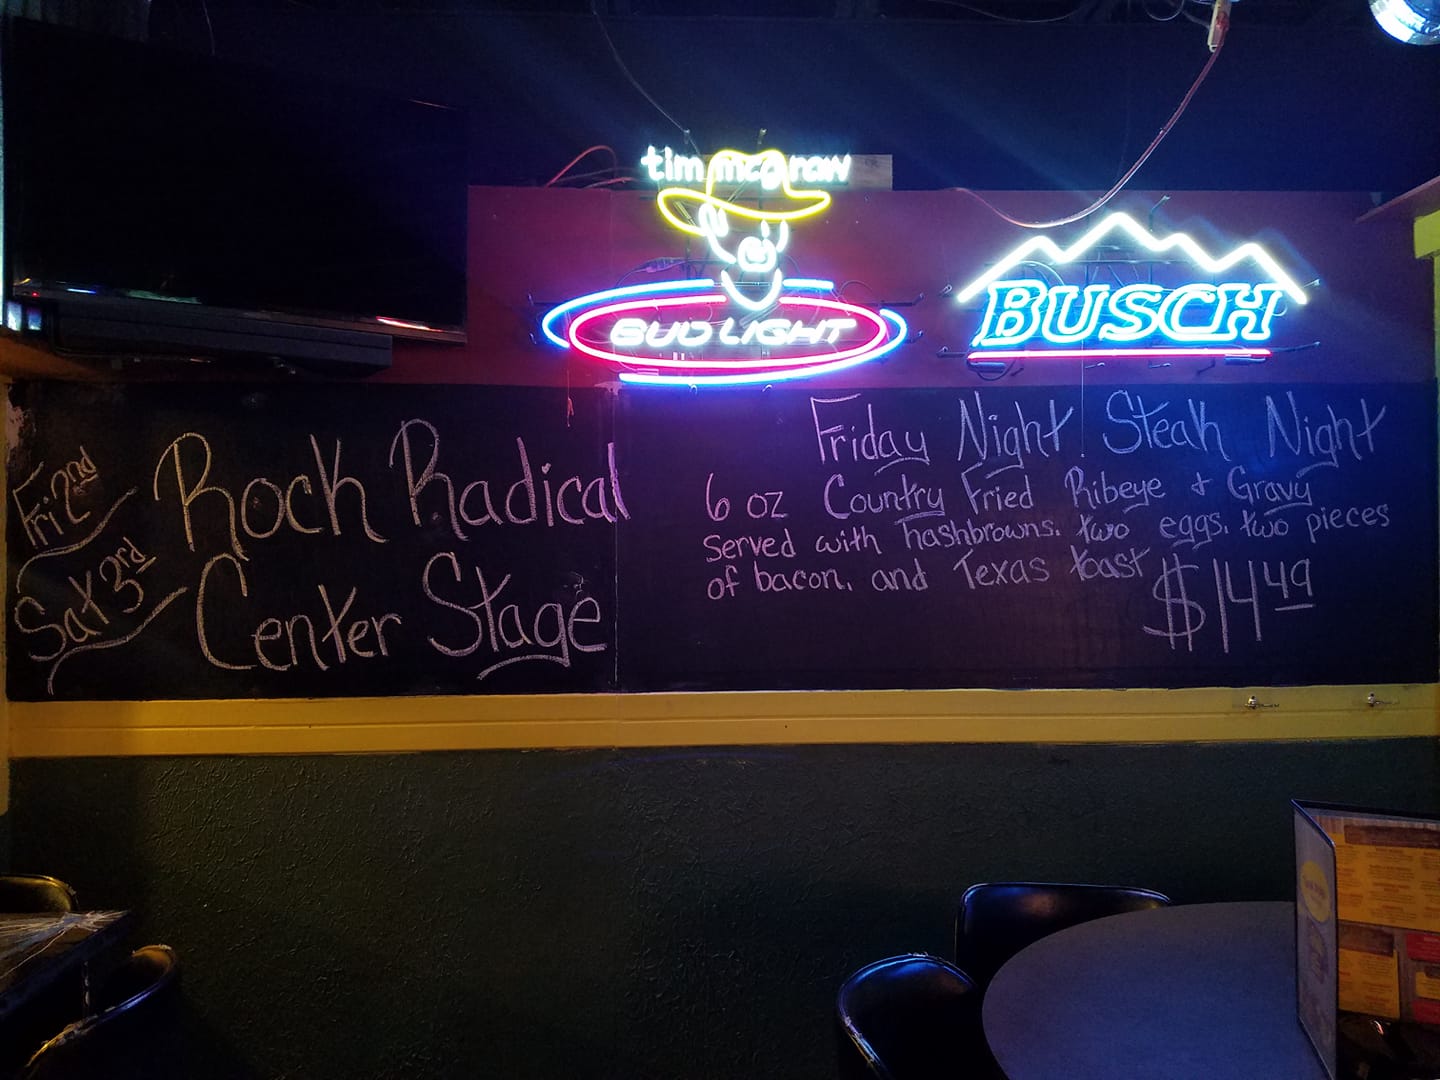 tim mcgraw
BUD LIGHT
BUSCH
Fri 2nd
Rock Radical
Sat 3rd
Center Stage
Friday Night Steak Night
6 oz Country Fried Ribeye & Gravy
Served with hashbrowns, two eggs, two pieces
of bacon, and Texas toast
$14.49